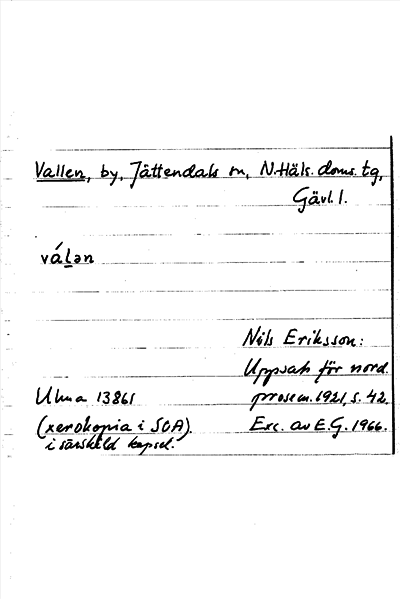 Vallen, by, Jättendals sn, N. Häls. doms. tg,
Gävl. l.
váḻən
Nils Eriksson:
Uppsats för nord.
Ulma 13861 prosem. 1921, s. 42.
(xerokopia i SOA). Exc. av E.G. 1966.
i särskild kapsel.